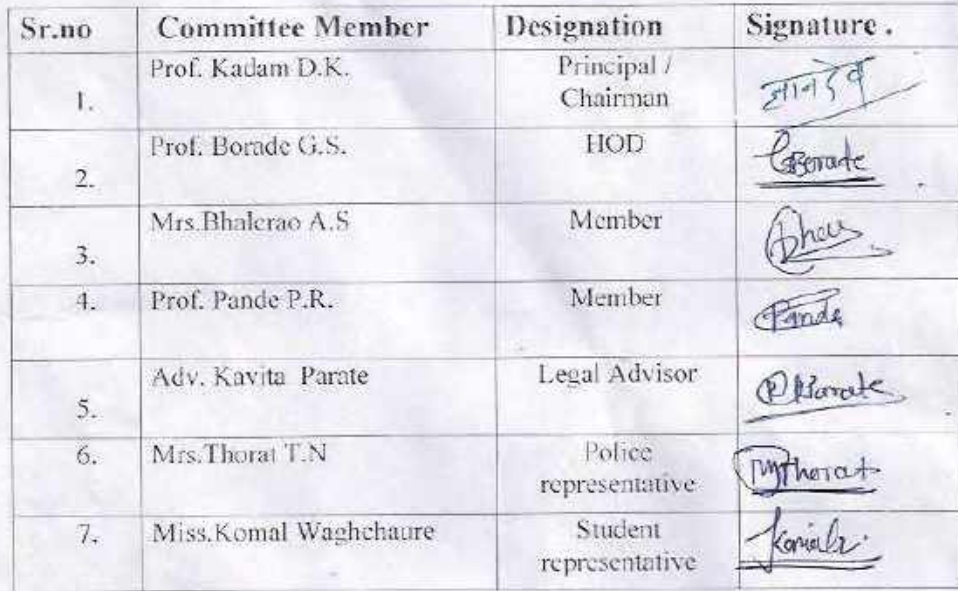 Sr.no Committee Member Designation Signature .
1. Prof. Kadam D.K. Principal / Chairman ज्ञानदेव
2. Prof. Borade G.S. HOD GBorade
3. Mrs.Bhalerao A.S Member
4. Prof. Pande P.R. Member Pande
5. Adv. Kavita Parate Legal Advisor
6. Mrs.Thorat T.N Police representative Thorat
7. Miss.Komal Waghchaure Student representative